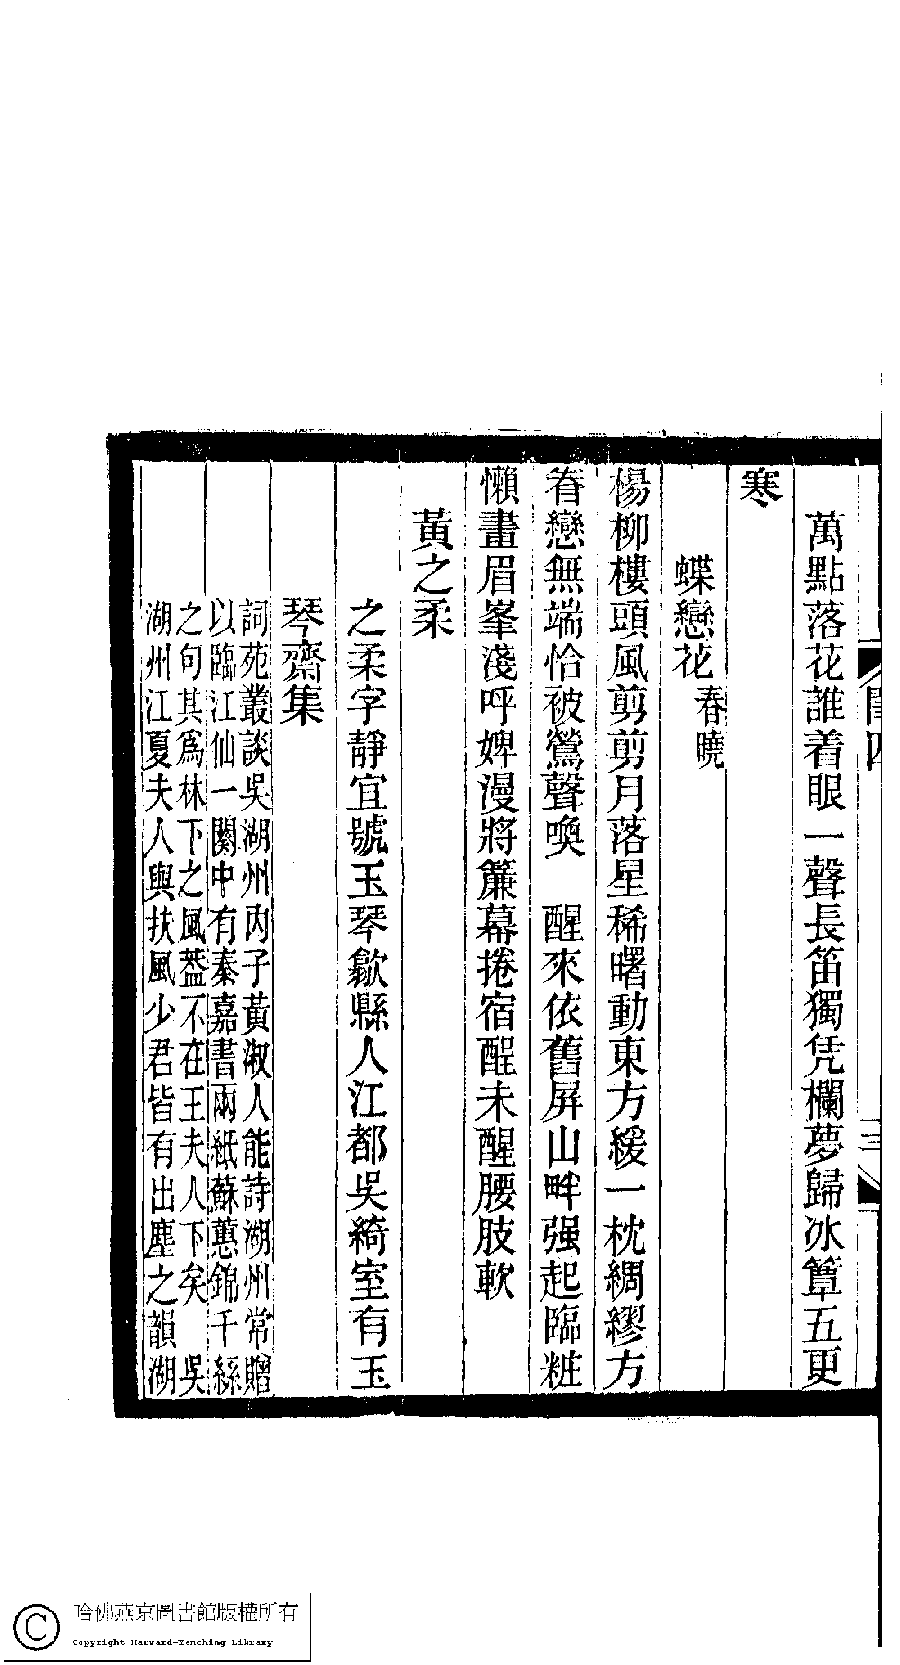 萬點落花誰着眼一聲長笛獨凭欄夢歸冰簟五更
寒
蝶戀花春曉
楊柳樓頭風剪剪月落星稀曙動東方緩一枕綢繆方
眷戀無端恰被鶯聲喚　醒來依舊屏山畔强起臨粧
懶畫眉峯淺呼婢漫將簾幕捲宿酲未醒腰肢軟
黃之柔
之柔字靜宜號玉琴歙縣人江都吳綺室有玉
琴齋集
詞苑叢談吳湖州內子黃淑人能詩湖州常贈
以臨江仙一闋中有秦嘉書兩紙蘇蕙錦千絲
之句其爲林下之風葢不在王夫人下矣　吳
湖州江夏夫人與扶風少君皆有出塵之韻湖
三
哈佛燕京圖書館版權所有
Copyright Harvard-Yenching Library